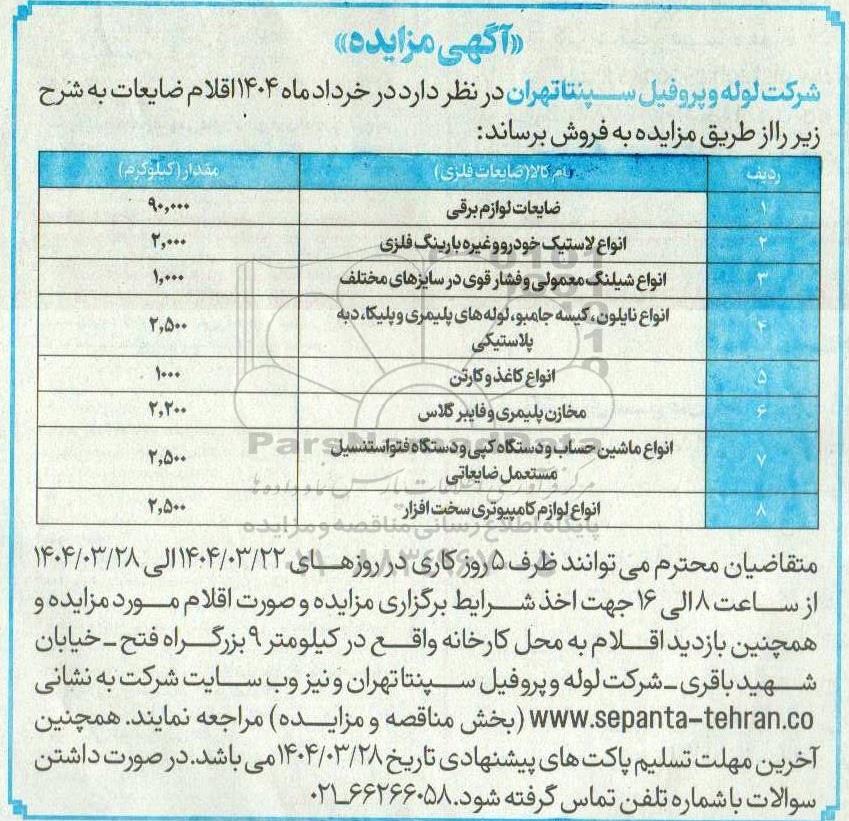 «آگهی مزایده»
شرکت لوله و پروفیل سپنتا تهران در نظر دارد در خرداد ماه ۱۴۰۴ اقلام ضایعات به شرح
زیر را از طریق مزایده به فروش برساند:
ردیف نام کالا (ضایعات فلزی) مقدار (کیلوگرم)
۱ ضایعات لوازم برقی ۹۰,۰۰۰
۲ انواع لاستیک خودرو و غیره با رینگ فلزی ۲,۰۰۰
۳ انواع شیلنگ معمولی و فشار قوی در سایزهای مختلف ۱,۰۰۰
۴ انواع نایلون، کیسه جامبو، لوله های پلیمری و پلیکا، دبه
پلاستیکی ۲,۵۰۰
۵ انواع کاغذ و کارتن ۱۰۰۰
۶ مخازن پلیمری و فایبر گلاس ۲,۲۰۰
۷ انواع ماشین حساب و دستگاه کپی و دستگاه فتواستنسیل
مستعمل ضایعاتی ۲,۵۰۰
۸ انواع لوازم کامپیوتری سخت افزار ۲,۵۰۰
ParsNamadData
مرکز فرآوری اطلاعات پارس نماد داده ها
پایگاه اطلاع رسانی مناقصه و مزایده
متقاضیان محترم می توانند ظرف ۵ روز کاری در روزهای ۱۴۰۴/۰۳/۲۲ الی ۱۴۰۴/۰۳/۲۸
از ساعت ۸ الی ۱۶ جهت اخذ شرایط برگزاری مزایده و صورت اقلام مورد مزایده و
همچنین بازدید اقلام به محل کارخانه واقع در کیلومتر ۹ بزرگراه فتح - خیابان
شهید باقری - شرکت لوله و پروفیل سپنتا تهران و نیز وب سایت شرکت به نشانی
www.sepanta-tehran.co (بخش مناقصه و مزایده) مراجعه نمایند. همچنین
آخرین مهلت تسلیم پاکت های پیشنهادی تاریخ ۱۴۰۴/۰۳/۲۸ می باشد. در صورت داشتن
سوالات با شماره تلفن تماس گرفته شود. ۰۲۱-۶۶۲۶۶۰۵۸